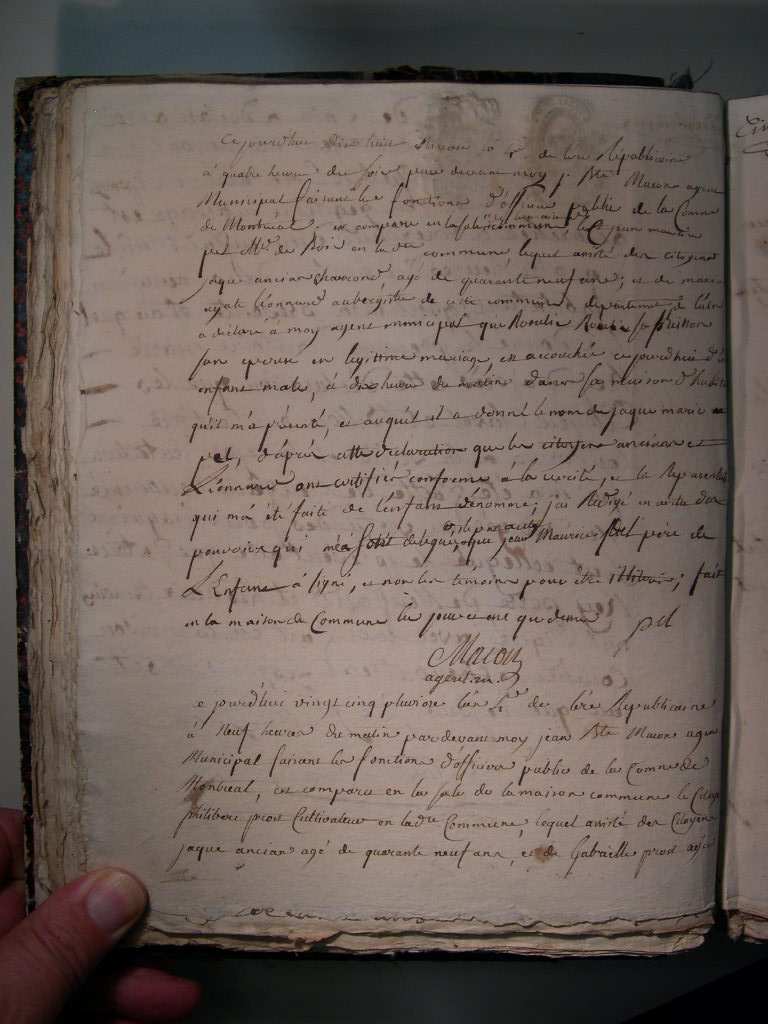 Cejourdhui dixhuit nivose de l'ere Républicaine
à quatre heures du soir par devant moy j. Bte Macon agent
Municipal faisant les fonctions d'officier public de la Comne
de Montréal, est comparu en la sale commune, le C. jean maurice
pel Md. de Bois en la de commune, lequel assisté des citoyens
jaque ancian, agé de quarante neuf ans; et de marie
Léonnard aubergiste de cette commune, departement de l'ain
a déclaré à moy agent municipal que Rosalie Buisson
son epouse en légitime mariage, est accouchée cejourdhui d'un
enfant male, à dix heures du matin dans sa maison d'habita
qu'il m'a présenté, et auquel il a donné le nom de jaque marie
pel, d'après cette déclaration que les citoyens ancian et
Léonnard ont certifiés conforme à la verité, et la représentation
qui m'a été faite de l'enfant dénommé; j'ai Rédigé en vertu des
pouvoirs qui me sont délégués, jean Maurice pel père de
L'Enfant à signé, et non les temoins pour être illitérés; fait
en la maison de Commune les jour et an que dessus pel
Macon
agent mu.
e jourd'hui vingt cinq pluviose l'an de l'ère Républicaine
à Neuf heures du matin par devant moy jean Bte Macon agen
Municipal faisant les fonctions d'officier public de la Comne de
Montréal, est comparu en la sale de la maison commune le Citoye
philibert prost Cultivateur en ladte Commune, lequel assisté des Citoyens
jaque ancian agé de quarante neuf ans, et de Gabrielle prost agé